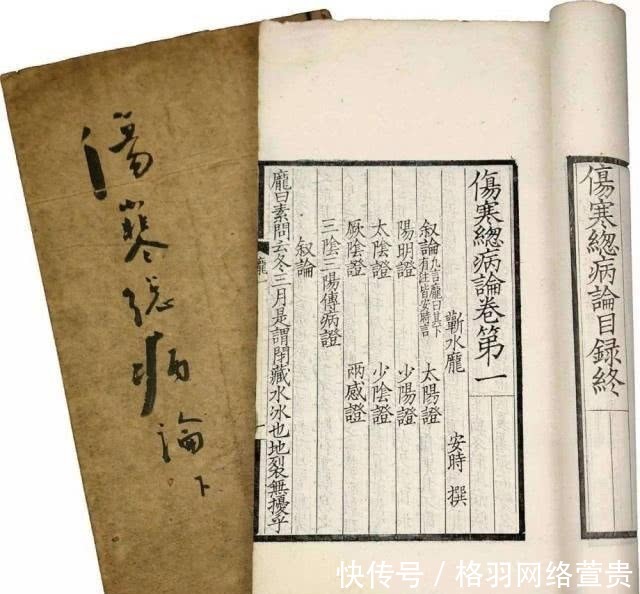 傷寒總病論下
傷寒總病論目録終
傷寒總病論卷第一
蘄水龐 安時 撰
叙論凢言龐曰其下有注皆安時言 太陽證
陽明證 少陽證
太陰證 少陰證
厥陰證 兩感證
三陰三陽傳病證
叙論
龐曰素問云冬三月是謂閉藏水冰也地裂無擾乎
龐一
快传号/格羽网络萱贵